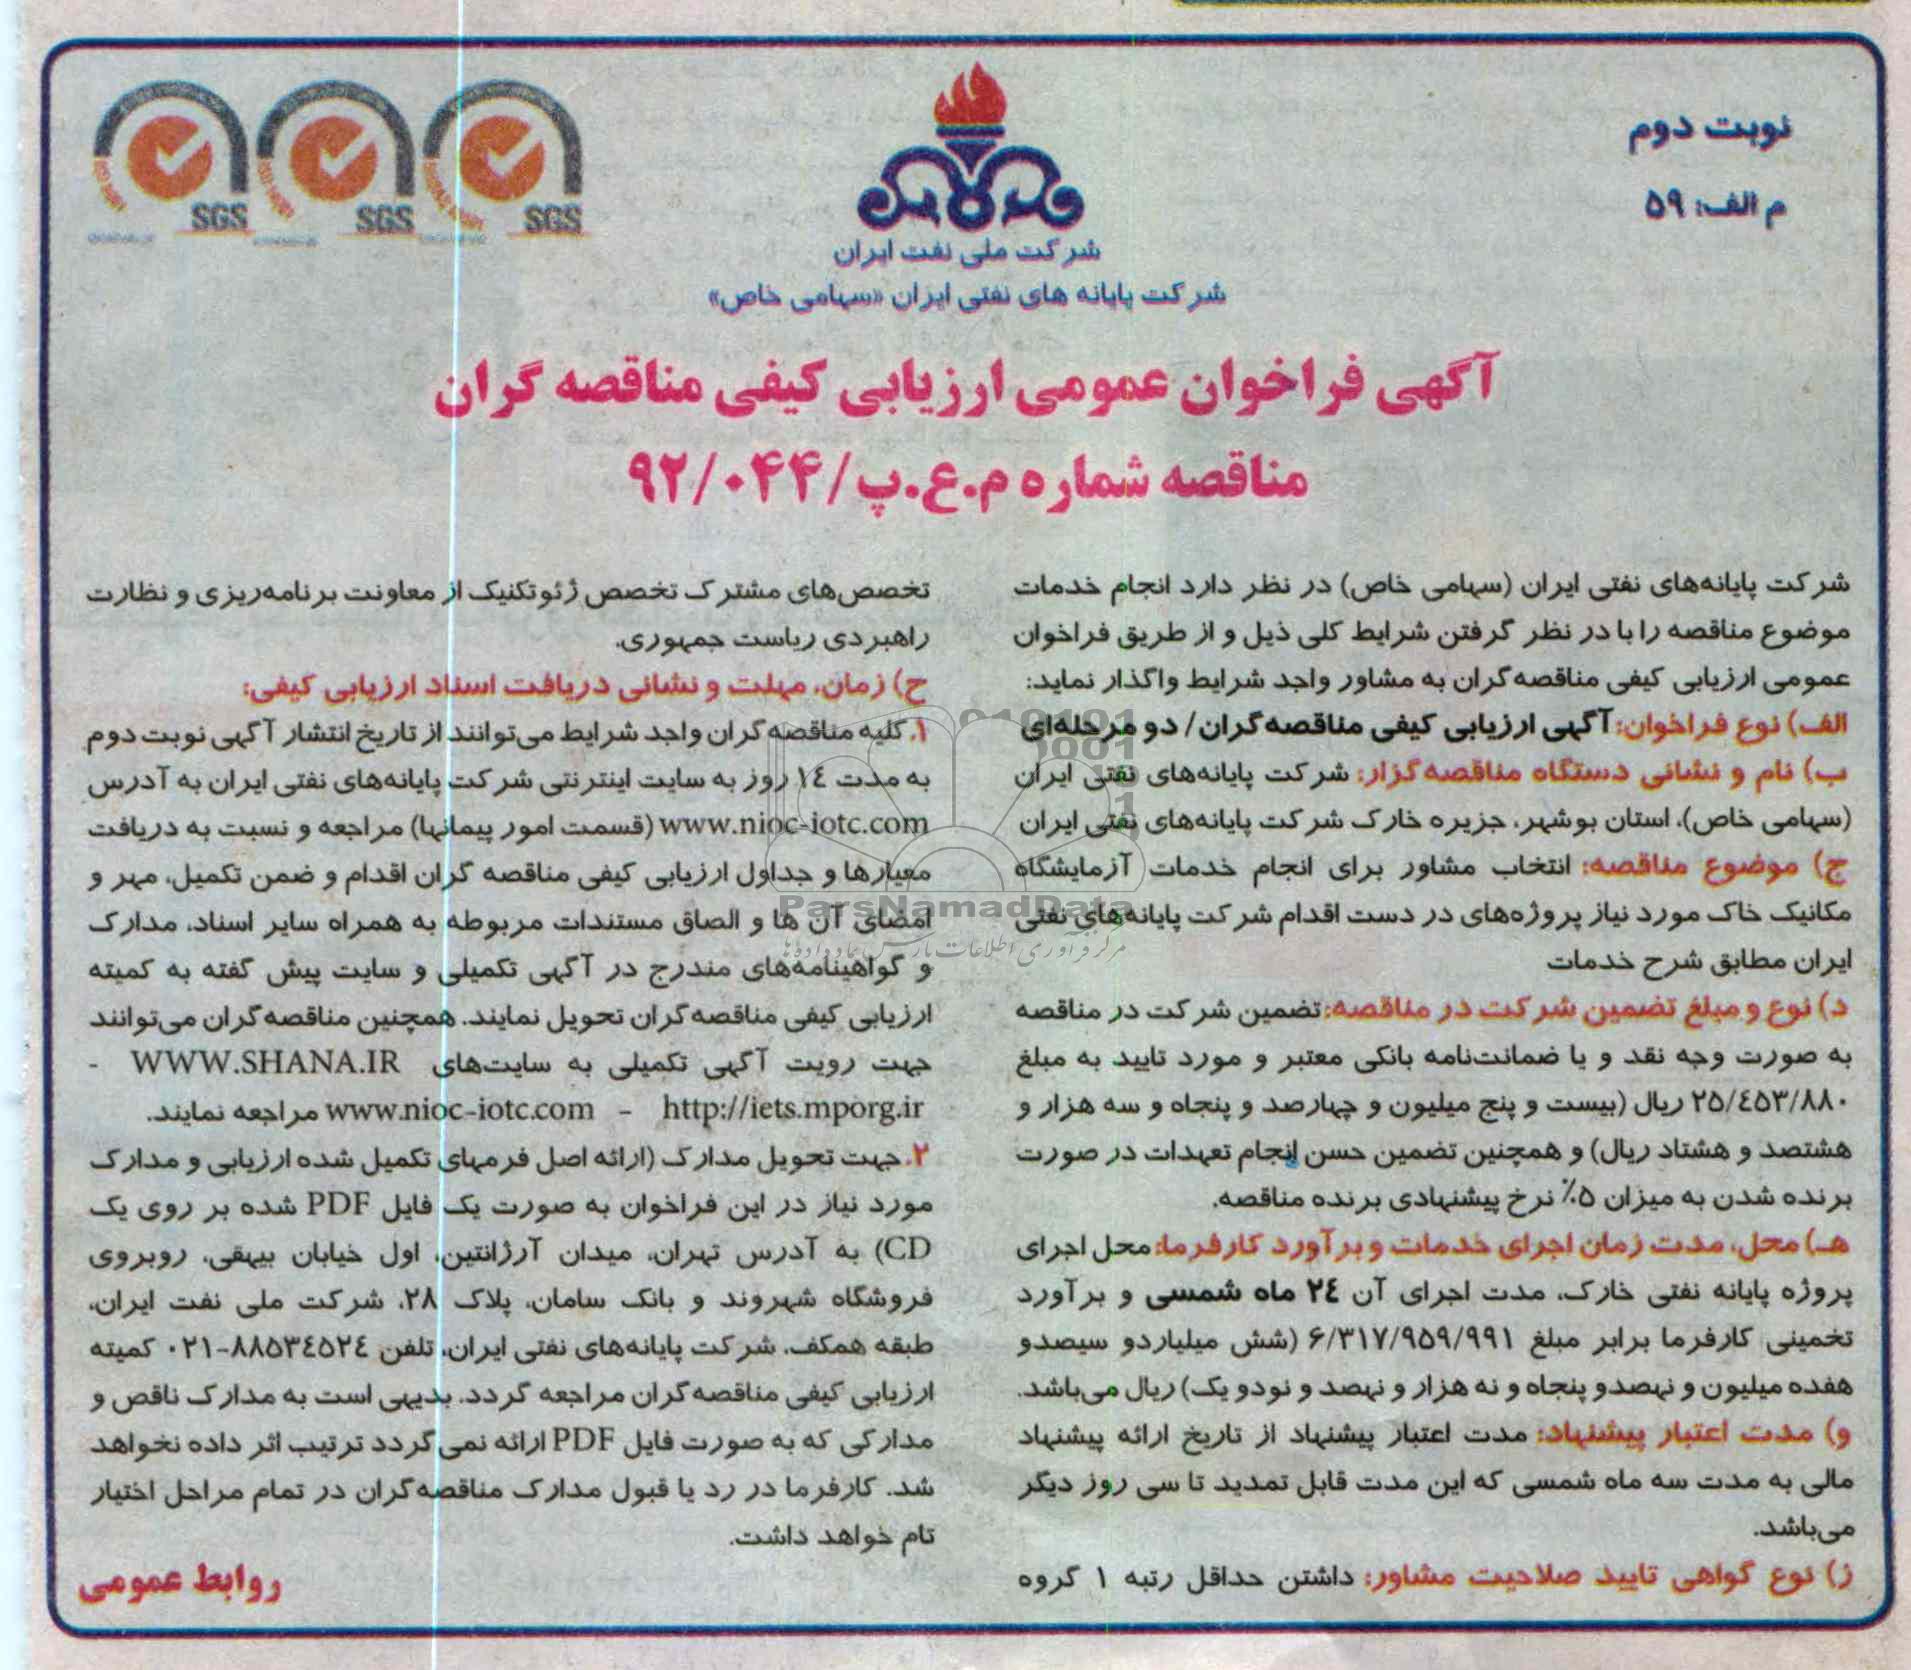 نوبت دوم
م الف: ۵۹
SGS
SGS
SGS
شرکت ملی نفت ایران
شرکت پایانه های نفتی ایران «سهامی خاص»
آگهی فراخوان عمومی ارزیابی کیفی مناقصه گران
مناقصه شماره م.ع.پ/۹۲/۰۴۴
شرکت پایانه‌های نفتی ایران (سهامی خاص) در نظر دارد انجام خدمات
موضوع مناقصه را با در نظر گرفتن شرایط کلی ذیل و از طریق فراخوان
عمومی ارزیابی کیفی مناقصه‌گران به مشاور واجد شرایط واگذار نماید:
الف) نوع فراخوان: آگهی ارزیابی کیفی مناقصه‌گران/ دو مرحله‌ای
ب) نام و نشانی دستگاه مناقصه‌گزار: شرکت پایانه‌های نفتی ایران
(سهامی خاص)، استان بوشهر، جزیره خارک شرکت پایانه‌های نفتی ایران
ج) موضوع مناقصه: انتخاب مشاور برای انجام خدمات آزمایشگاه
مکانیک خاک مورد نیاز پروژه‌های در دست اقدام شرکت پایانه‌های نفتی
ایران مطابق شرح خدمات
د) نوع و مبلغ تضمین شرکت در مناقصه: تضمین شرکت در مناقصه
به صورت وجه نقد و یا ضمانت‌نامه بانکی معتبر و مورد تایید به مبلغ
۲۵/٤۵۳/۸۸۰ ریال (بیست و پنج میلیون و چهارصد و پنجاه و سه هزار و
هشتصد و هشتاد ریال) و همچنین تضمین حسن انجام تعهدات در صورت
برنده شدن به میزان ۵٪ نرخ پیشنهادی برنده مناقصه.
هـ) محل، مدت زمان اجرای خدمات و برآورد کارفرما: محل اجرای
پروژه پایانه نفتی خارک، مدت اجرای آن ۲٤ ماه شمسی و برآورد
تخمینی کارفرما برابر مبلغ ۶/۳۱۷/۹۵۹/۹۹۱ (شش میلیاردو سیصدو
هفده میلیون و نهصدو پنجاه و نه هزار و نهصد و نودو یک) ریال می‌باشد.
و) مدت اعتبار پیشنهاد: مدت اعتبار پیشنهاد از تاریخ ارائه پیشنهاد
مالی به مدت سه ماه شمسی که این مدت قابل تمدید تا سی روز دیگر
می‌باشد.
ز) نوع گواهی تایید صلاحیت مشاور: داشتن حداقل رتبه ۱ گروه
تخصص‌های مشترک تخصص ژئوتکنیک از معاونت برنامه‌ریزی و نظارت
راهبردی ریاست جمهوری.
ح) زمان، مهلت و نشانی دریافت اسناد ارزیابی کیفی:
۱. کلیه مناقصه‌گران واجد شرایط می‌توانند از تاریخ انتشار آگهی نوبت دوم
به مدت ۱٤ روز به سایت اینترنتی شرکت پایانه‌های نفتی ایران به آدرس
www.nioc-iotc.com (قسمت امور پیمانها) مراجعه و نسبت به دریافت
معیارها و جداول ارزیابی کیفی مناقصه گران اقدام و ضمن تکمیل، مهر و
امضای آن ها و الصاق مستندات مربوطه به همراه سایر اسناد، مدارک
و گواهینامه‌های مندرج در آگهی تکمیلی و سایت پیش گفته به کمیته
ارزیابی کیفی مناقصه‌گران تحویل نمایند. همچنین مناقصه‌گران می‌توانند
جهت رویت آگهی تکمیلی به سایت‌های WWW.SHANA.IR -
http://iets.mporg.ir - www.nioc-iotc.com مراجعه نمایند.
۲. جهت تحویل مدارک (ارائه اصل فرمهای تکمیل شده ارزیابی و مدارک
مورد نیاز در این فراخوان به صورت یک فایل PDF شده بر روی یک
CD) به آدرس تهران، میدان آرژانتین، اول خیابان بیهقی، روبروی
فروشگاه شهروند و بانک سامان، پلاک ۲۸، شرکت ملی نفت ایران،
طبقه همکف، شرکت پایانه‌های نفتی ایران، تلفن ۸۸۵۳٤۵۲٤-۰۲۱ کمیته
ارزیابی کیفی مناقصه‌گران مراجعه گردد. بدیهی است به مدارک ناقص و
مدارکی که به صورت فایل PDF ارائه نمی گردد ترتیب اثر داده نخواهد
شد. کارفرما در رد یا قبول مدارک مناقصه‌گران در تمام مراحل اختیار
تام خواهد داشت.
روابط عمومی
ParsNamadData